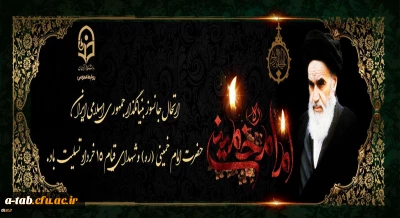 امام خمینی
ارتحال جانسوز بنیانگذار جمهوری اسلامی ایران
حضرت امام خمینی (ره) و شهدای قیام ۱۵ خرداد تسلیت باد
a-tab.cfu.ac.ir